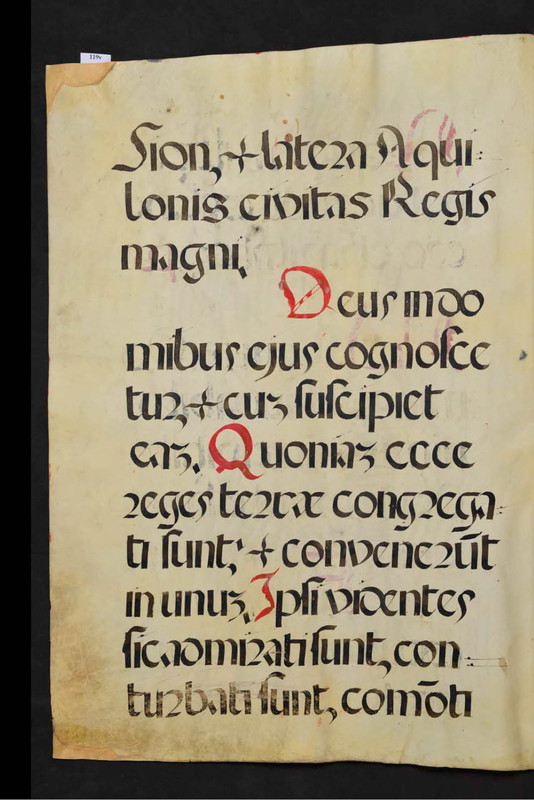 119v
Sion, + latera Aqui:
lonis civitas Regis
magni,
Deus in do
mibus ejus cognoſce
tur, + cuz ſuſcipiet
eaz. Quoniaz ecce
reges terræ congrega:
ti ſunt; + convenerūt
in unuz, Ipſi videntes
ſic admirati ſunt, con:
turbati ſunt, com̄oti